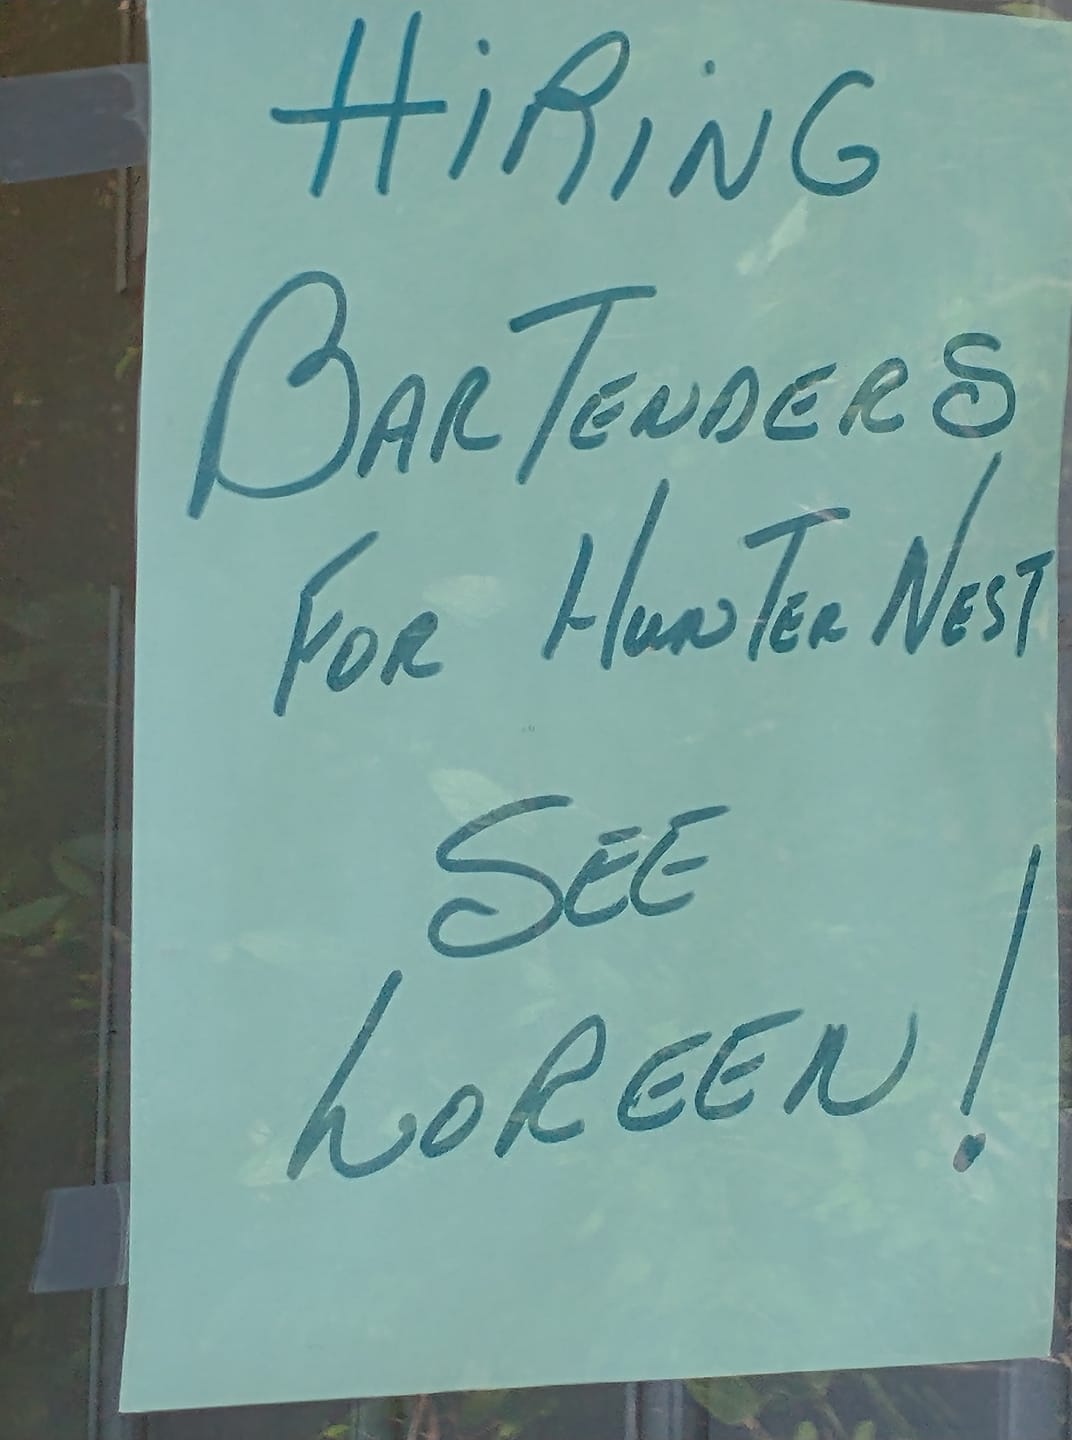 HiRiNG
BARTENDERS
FOR HUNTER NEST
SEE
LOREEN!